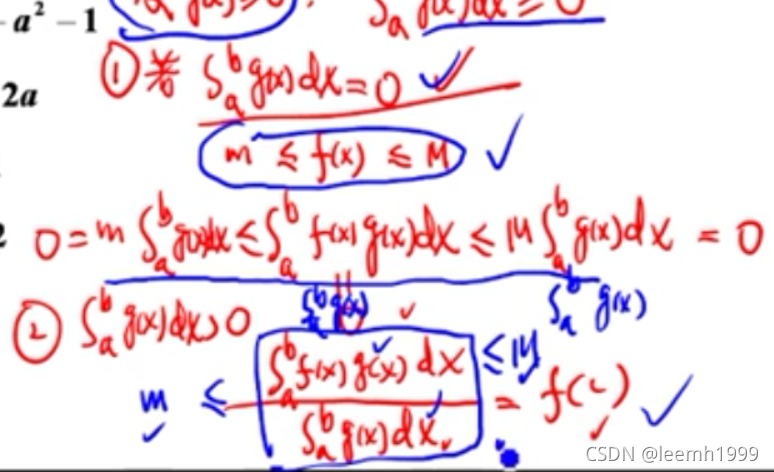 - a² - 1
∫ₐᵇ g(x)dx ≥ 0
2a
① 若 ∫ₐᵇ g(x)dx = 0 ✓
m ≤ f(x) ≤ M ✓
0 = m ∫ₐᵇ g(x)dx ≤ ∫ₐᵇ f(x)g(x)dx ≤ M ∫ₐᵇ g(x)dx = 0
∫ₐᵇ g(x) ∫ₐᵇ g(x)
② ∫ₐᵇ g(x)dx > 0
m ≤ ∫ₐᵇ f(x)g(x)dx / ∫ₐᵇ g(x)dx ≤ M = f(c) ✓
CSDN @leemh1999